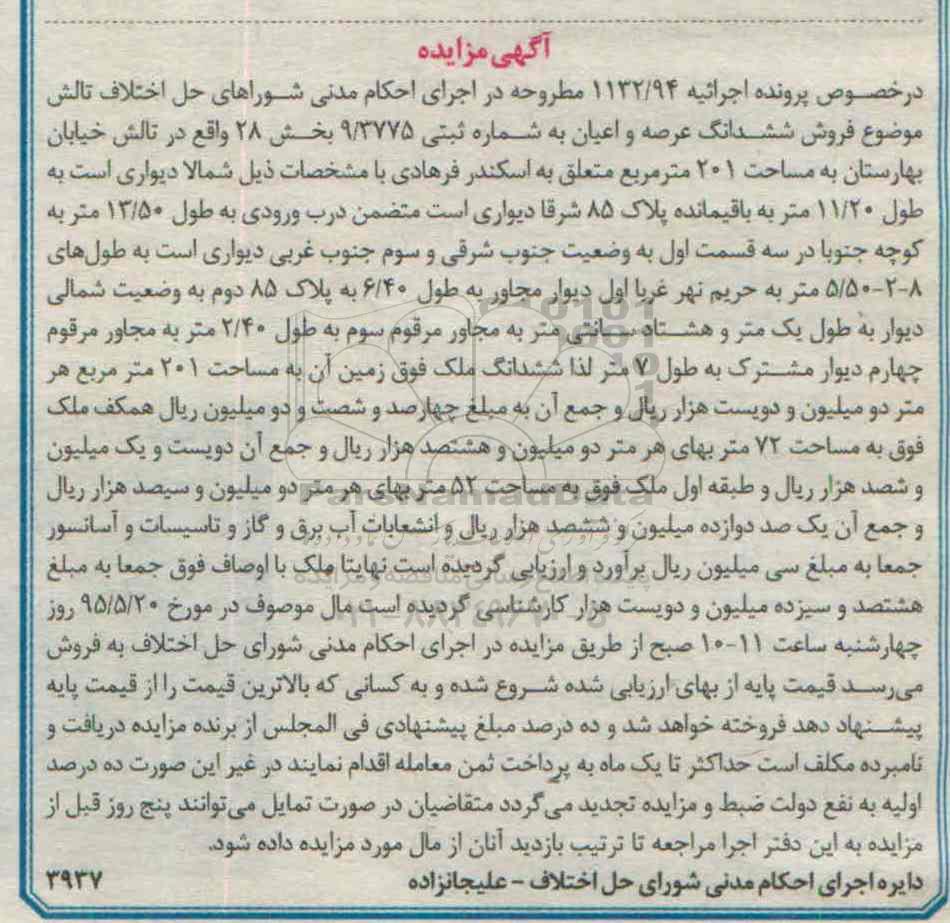 آگهی مزایده
درخصوص پرونده اجرائیه ۱۱۳۲/۹۴ مطروحه در اجرای احکام مدنی شوراهای حل اختلاف تالش
موضوع فروش ششدانگ عرصه و اعیان به شماره ثبتی ۹/۳۷۷۵ بخش ۲۸ واقع در تالش خیابان
بهارستان به مساحت ۲۰۱ مترمربع متعلق به اسکندر فرهادی با مشخصات ذیل شمالا دیواری است به
طول ۱۱/۲۰ متر به باقیمانده پلاک ۸۵ شرقا دیواری است متضمن درب ورودی به طول ۱۳/۵۰ متر به
کوچه جنوبا در سه قسمت اول به وضعیت جنوب شرقی و سوم جنوب غربی دیواری است به طول‌های
۸-۲-۵/۵۰ متر به حریم نهر غربا اول دیوار مجاور به طول ۶/۴۰ به پلاک ۸۵ دوم به وضعیت شمالی
دیوار به طول یک متر و هشتاد سانتی متر به مجاور مرقوم سوم به طول ۲/۴۰ متر به مجاور مرقوم
چهارم دیوار مشترک به طول ۷ متر لذا ششدانگ ملک فوق زمین آن به مساحت ۲۰۱ متر مربع هر
متر دو میلیون و دویست هزار ریال و جمع آن به مبلغ چهارصد و شصت و دو میلیون ریال همکف ملک
فوق به مساحت ۷۲ متر بهای هر متر دو میلیون و هشتصد هزار ریال و جمع آن دویست و یک میلیون
و شصد هزار ریال و طبقه اول ملک فوق به مساحت ۵۲ متر بهای هر متر دو میلیون و سیصد هزار ریال
و جمع آن یک صد دوازده میلیون و ششصد هزار ریال و انشعابات آب برق و گاز و تاسیسات و آسانسور
جمعا به مبلغ سی میلیون ریال برآورد و ارزیابی گردیده است نهایتا ملک با اوصاف فوق جمعا به مبلغ
هشتصد و سیزده میلیون و دویست هزار کارشناسی گردیده است مال موصوف در مورخ ۹۵/۵/۲۰ روز
چهارشنبه ساعت ۱۱-۱۰ صبح از طریق مزایده در اجرای احکام مدنی شورای حل اختلاف به فروش
می‌رسد قیمت پایه از بهای ارزیابی شده شروع شده و به کسانی که بالاترین قیمت را از قیمت پایه
پیشنهاد دهد فروخته خواهد شد و ده درصد مبلغ پیشنهادی فی المجلس از برنده مزایده دریافت و
نامبرده مکلف است حداکثر تا یک ماه به پرداخت ثمن معامله اقدام نمایند در غیر این صورت ده درصد
اولیه به نفع دولت ضبط و مزایده تجدید می‌گردد متقاضیان در صورت تمایل می‌توانند پنج روز قبل از
مزایده به این دفتر اجرا مراجعه تا ترتیب بازدید آنان از مال مورد مزایده داده شود.
دایره اجرای احکام مدنی شورای حل اختلاف - علیجانزاده
۳۹۳۷